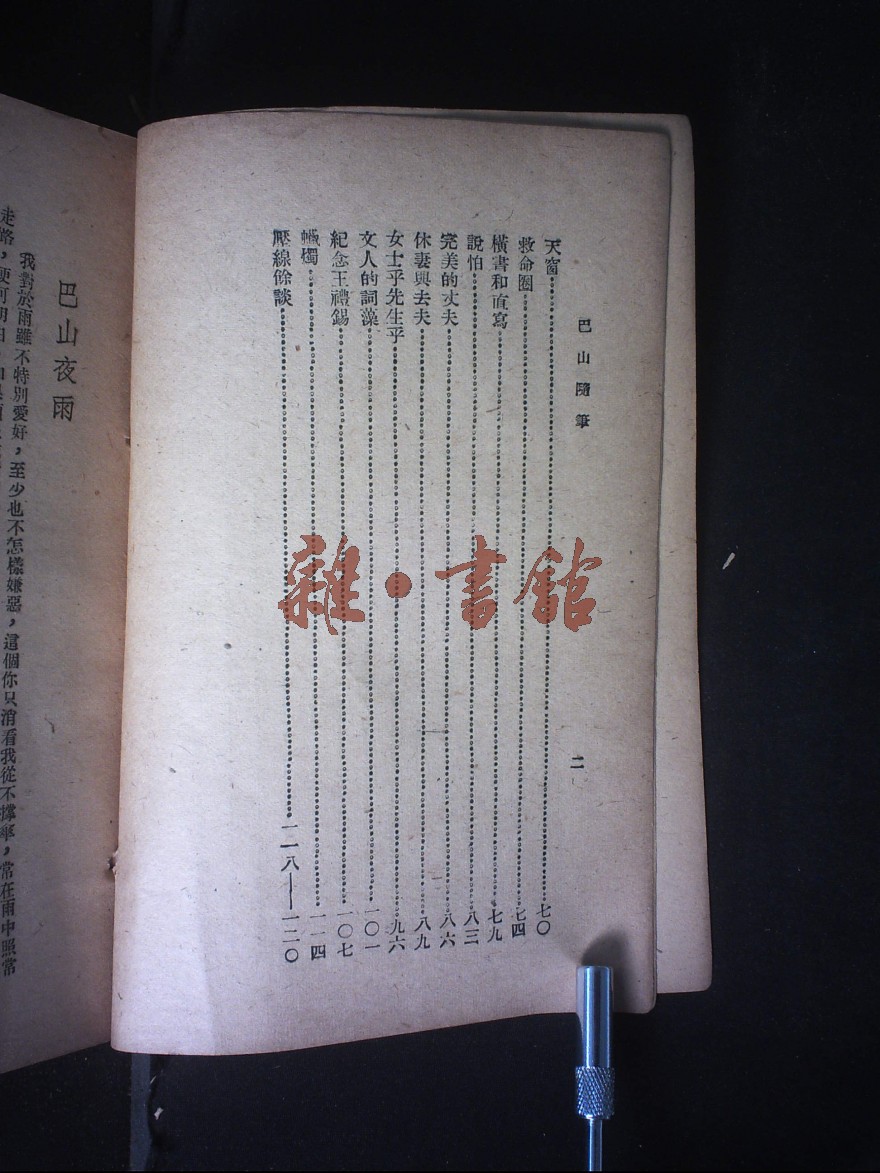 巴山隨筆
二
天窗……七〇
救命圈……七四
橫書和直寫……七九
說怕……八三
完美的丈夫……八六
休妻與去夫……八九
女士乎先生乎……九六
文人的詞藻……一〇一
紀念王禮錫……一〇七
蠟燭……一一四
壓線餘談……一一八——一二〇
雜·書館
巴山夜雨
我對於雨雖不特別愛好，至少也不怎樣嫌惡，這個你只消看我從不撐傘，常在雨中照常
走路，便可明